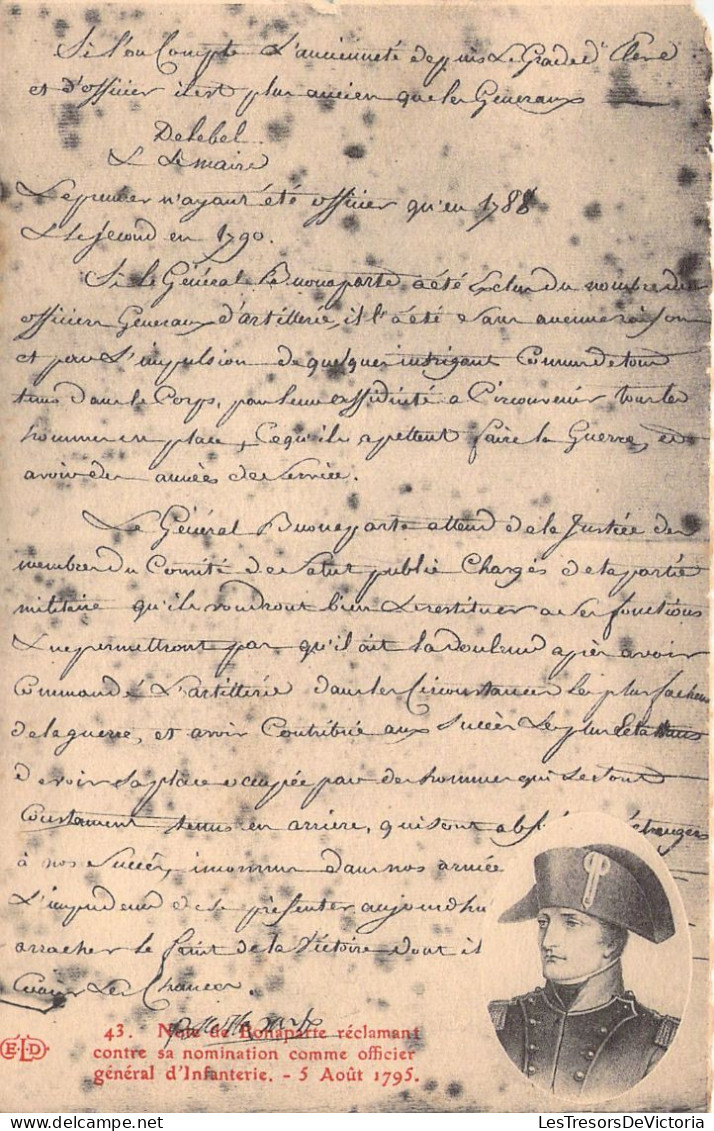 Si l'on Compte L'ancienneté depuis Le Grade d'Eleve
et d'officier il est plus ancien que les Generaux
Delebel
& Lemaire
Le premier n'ayant été officier qu'en 1788
& le second en 1790.
Si le Général Buonaparte a été Exclu du nombre des
officiers Generaux d'artillerie, il l'a été sans aucune raison
et par L'impulsion de quelques intrigants Connus de tout
tems dans le Corps, par leur assiduité a Circonvenir tous les
hommes en place, Ce qu'ils apellent faire la Guerre, et
avoir des années de Service.
Le Général Buonaparte attend de la Justice des
membres du Comité de Salut public Chargés de la partie
militaire qu'ils voudront bien Le restituer a Ses fonctions
& ne permettront pas qu'il ait la douleur après avoir
Commandé L'artillerie dans les Circonstances les plus facheuses
de la guerre, et avoir Contribué aux Succès Les plus Eclattants
de voir Sa place occupée par des hommes qui se sont
Constament tenus en arrière, qui sont étrangers
à nos Succès, inconnus dans nos armées
& L'impudeur de se présenter aujourd'hui
arracher le fruit de la Victoire dont il
Les Chances.
43. Note de Bonaparte réclamant
contre sa nomination comme officier
général d'Infanterie. - 5 Août 1795.
E.L.D
LesTresorsDeVictoria